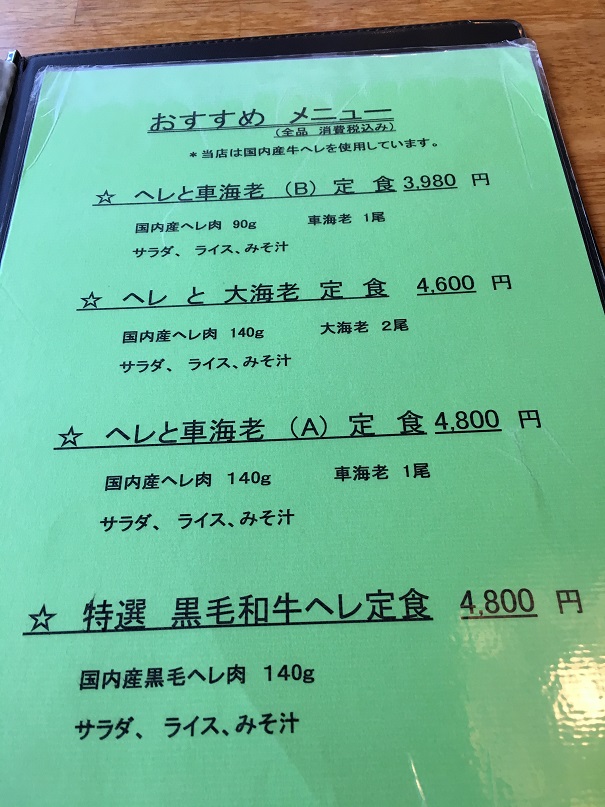 おすすめ メニュー
(全品 消費税込み)
＊当店は国内産牛ヘレを使用しています。
☆ ヘレと車海老 (B) 定 食 3,980 円
国内産ヘレ肉 90g 車海老 1尾
サラダ、 ライス、みそ汁
☆ ヘレ と 大海老 定 食 4,600 円
国内産ヘレ肉 140g 大海老 2尾
サラダ、 ライス、みそ汁
☆ ヘレと車海老 (A) 定 食 4,800 円
国内産ヘレ肉 140g 車海老 1尾
サラダ、 ライス、みそ汁
☆ 特選 黒毛和牛ヘレ定食 4,800 円
国内産黒毛ヘレ肉 140g
サラダ、 ライス、みそ汁